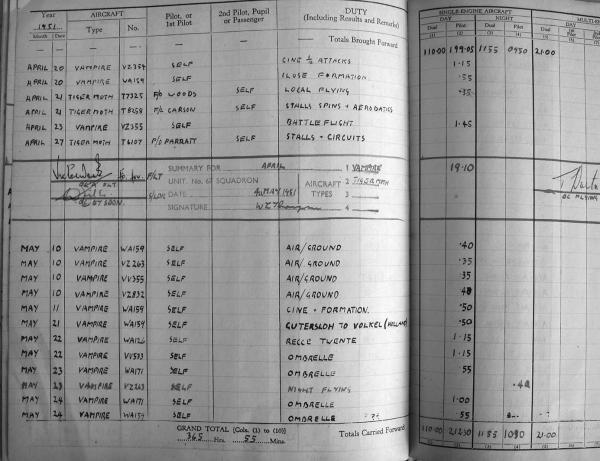 YEAR AIRCRAFT Pilot, or 1st Pilot 2nd Pilot, Pupil or Passenger DUTY (Including Results and Remarks) SINGLE-ENGINE AIRCRAFT MULTI-E
1951 DAY NIGHT DAY
Month Date Type No. Dual Pilot Dual Pilot Dual
(1) (2) (3) (4) (5)
Totals Brought Forward 110.00 199.05 1155 0950 21.00
APRIL 20 VAMPIRE VZ354 SELF CINE ¼ ATTACKS 1.15
APRIL 20 VAMPIRE WA159 SELF CLOSE FORMATION .55
APRIL 21 TIGER MOTH T7325 F/O WOODS SELF LOCAL FLYING .35
APRIL 21 TIGER MOTH T8258 F/L CARSON SELF STALLS SPINS + AEROBATICS
APRIL 23 VAMPIRE VZ355 SELF BATTLE FLIGHT 1.45
APRIL 27 TIGER MOTH T6107 P/O PARRATT SELF STALLS + CIRCUITS
SUMMARY FOR APRIL 1 VAMPIRE 19.10
UNIT. No. 67 SQUADRON AIRCRAFT 2 TIGER MOTH
DATE TYPES 3
SIGNATURE 4
OC FLYING
MAY 10 VAMPIRE WA159 SELF AIR/GROUND .40
MAY 10 VAMPIRE VZ263 SELF AIR/GROUND .35
MAY 10 VAMPIRE VV355 SELF AIR/GROUND 35
MAY 10 VAMPIRE VZ832 SELF AIR/GROUND
MAY 11 VAMPIRE WA159 SELF CINE + FORMATION. .50
MAY 21 VAMPIRE WA159 SELF GUTERSLOH TO VOLKEL (HOLLAND) .50
MAY 22 VAMPIRE WA126 SELF RECCE TWENTE 1.15
MAY 22 VAMPIRE SELF OMBRELLE 1.15
MAY 23 VAMPIRE WA171 SELF OMBRELLE 55
MAY 23 VAMPIRE VZ263 SELF NIGHT FLYING
MAY 24 VAMPIRE WA171 SELF OMBRELLE 1.00
MAY 24 VAMPIRE WA159 SELF OMBRELLE 55
GRAND TOTAL [Cols. (1) to (10)] Totals Carried Forward 110.00 21.00
365 Hrs. 55 Mins. (1) (2) (3) (4) (5)